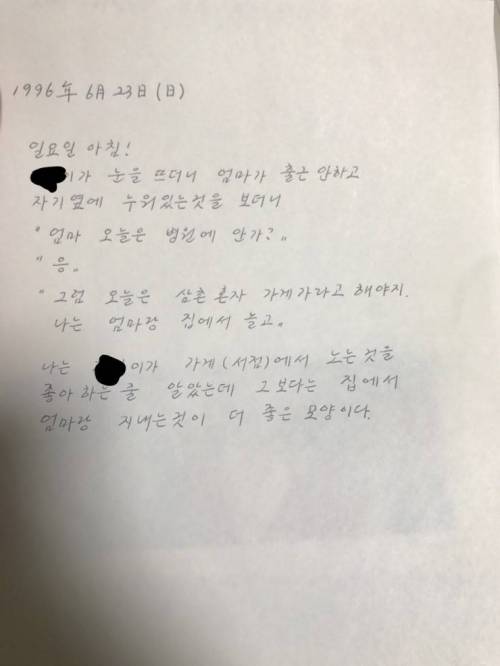 1996年 6月 23日 (日)
일요일 아침!
이가 눈을 뜨더니 엄마가 출근 안하고
자기 옆에 누워있는것을 보더니
" 엄마 오늘은 병원에 안가? "
" 응. "
" 그럼 오늘은 삼촌 혼자 가게가라고 해야지.
나는 엄마랑 집에서 놀고. "
나는 이가 가게 (서점) 에서 노는것을
좋아 하는 줄 알았는데 그보다는 집에서
엄마랑 지내는것이 더 좋은 모양이다.